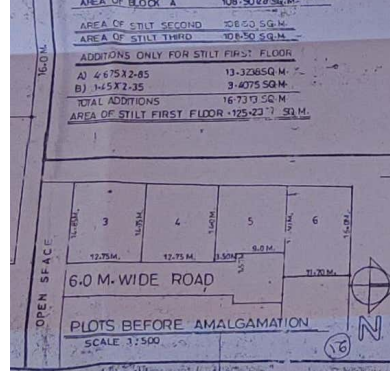 AREA OF BLOCK A
AREA OF STILT SECOND 108.50 SQ.M.
AREA OF STILT THIRD 108.50 SQ.M.
ADDITIONS ONLY FOR STILT FIRST FLOOR
A) 4.675X2.85 13.3236SQ.M.
B) 1.45X2.35 3.4075SQ.M.
TOTAL ADDITIONS 16.7313 SQ.M
AREA OF STILT FIRST FLOOR SQ.M.
16.0 M.
3
4
5
6
12.75M.
12.75 M.
3.50M
9.0 M.
11.20 M.
6.0 M. WIDE ROAD
OPEN SPACE
PLOTS BEFORE AMALGAMATION
SCALE 1:500
N